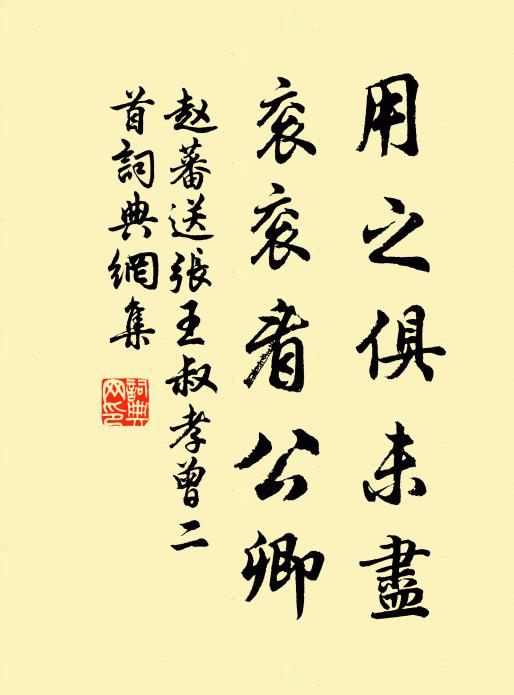 用之俱未盡
衮衮看公卿
赵蕃送張王叔孝曾二
首詞典網集
詞典
网印